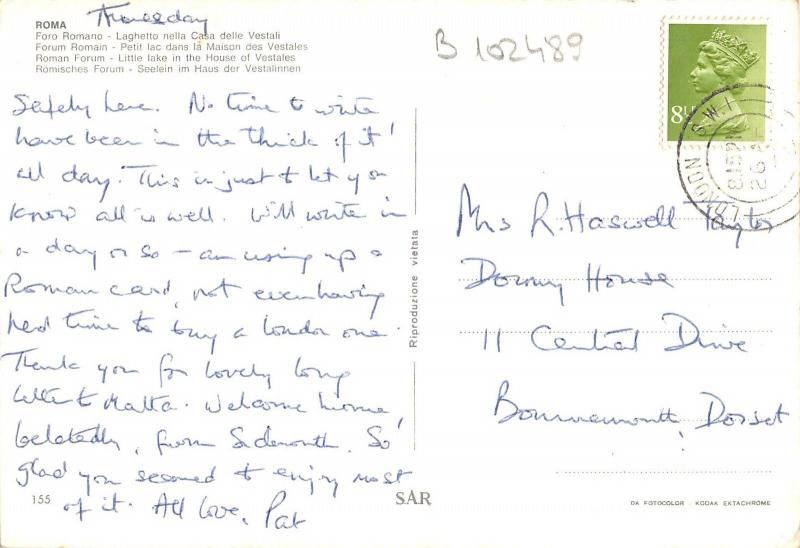 Thursday
ROMA
Foro Romano - Laghetto nella Casa delle Vestali
Forum Romain - Petit lac dans la Maison des Vestales
Roman Forum - Little lake in the House of Vestales
Römisches Forum - Seelein im Haus der Vestalinnen
Safely here. No time to write
have been in the thick of it'
all day. This is just to let you
know all is well. Will write in
a day or so – am using up a
Roman card, not even having
had time to buy a London one.
Thank you for lovely long
letter to Malta. Welcome home,
belatedly, from Sidmouth. So
glad you seemed to enjoy most
of it. All love, Pat
155
SAR
Riproduzione vietata
B 102489
8½
LONDON S.W.1
Mrs R. Haswell Taylor
Dormy House
11 Central Drive
Bournemouth, Dorset
DA FOTOCOLOR - KODAK EKTACHROME